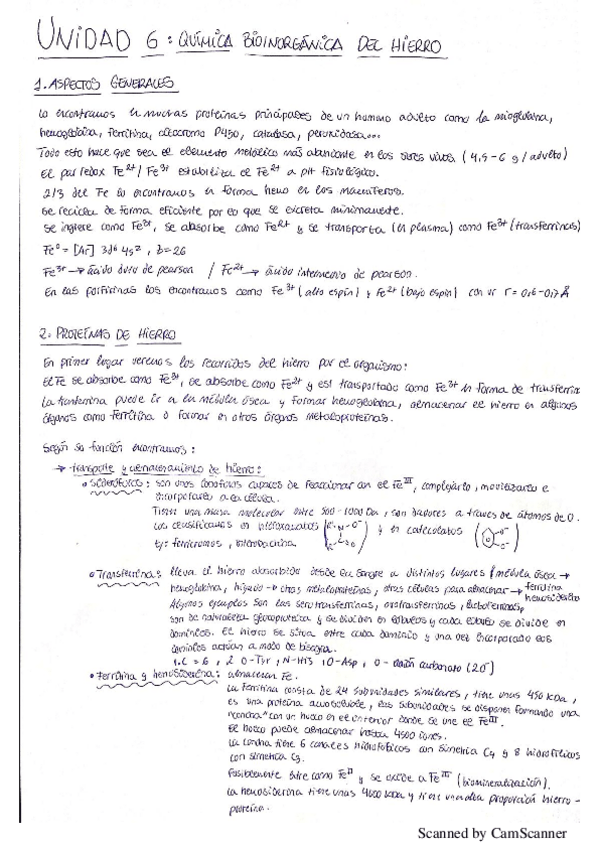 UNIDAD 6: QUÍMICA BIOINORGÁNICA DEL HIERRO
1. ASPECTOS GENERALES
Lo encontramos en muchas proteínas principales de un humano adulto como la mioglobina,
hemoglobina, ferritina, citocromo P450, catalasa, peroxidasa...
Todo esto hace que sea el elemento metálico más abundante en los seres vivos (4,5-6 g/adulto)
El par redox Fe2+/Fe3+ estabiliza el Fe2+ a pH fisiológico.
2/3 del Fe lo encontramos en forma hemo en los mamíferos.
Se recicla de forma eficiente por lo que se excreta mínimamente.
Se ingiere como Fe3+, se absorbe como Fe2+ y se transporta (en plasma) como Fe3+ (transferrinas)
Fe0 = [Ar] 3d6 4s2, Z=26
Fe3+ → ácido duro de pearson / Fe2+ → ácido intermedio de pearson.
En las porfirinas los encontramos como Fe3+ (alto espín) y Fe2+ (bajo espín) con r = 0,6-0,7 Å
2. PROTEÍNAS DE HIERRO
En primer lugar veremos los recorridos del hierro por el organismo:
El Fe se absorbe como Fe3+, se absorbe como Fe2+ y es transportado como Fe3+ en forma de transferrina
La transferrina puede ir a la médula ósea y formar hemoglobina, almacenar el hierro en algunos
órganos como ferritina o formar en otros órganos metaloproteínas.
Según su función encontramos:
→ Transporte y almacenamiento de hierro:
• Sideróforos: son unos capaces de reaccionar con el FeIII, complejarlo, movilizarlo e
incorporarlo a la célula.
Tiene una masa molecular entre 500-1000 Da, son dadores a través de átomos de O.
Los clasificamos en hidroxamatos y en catecolatos
Ej: ferricromos, enterobactina
• Transferrina: lleva el hierro absorbido desde la sangre a distintos lugares (médula ósea →
hemoglobina, hígado → otras metaloproteínas, otras células para almacenar → ferritina
hemosiderina
Algunos ejemplos son las serotransferrinas, ovotransferrinas, lactoferrinas,
son de naturaleza glucoproteica y se dividen en lóbulos y cada lóbulo se divide en
dominios. El hierro se sitúa entre cada dominio y una vez incorporado los
dominios actúan a modo de bisagra.
I.C = 6, 2 O-Tyr, N-His, O-Asp, O-anión carbonato (2O-)
• Ferritina y hemosiderina: almacenan Fe.
La ferritina consta de 24 subunidades similares, tiene unas 450 kDa,
es una proteína, las subunidades se disponen formando una
"concha" con un hueco en el interior donde se une el FeIII.
El hueco puede almacenar hasta 4500 iones.
La concha tiene 6 canales hidrofóbicos con simetría C4 y 8 hidrofílicos
con simetría C3.
Posiblemente entre como FeII y se oxide a FeIII (biomineralización).
La hemosiderina tiene unas 4000 kDa y tiene una alta proporción hierro-
proteína.
Scanned by CamScanner